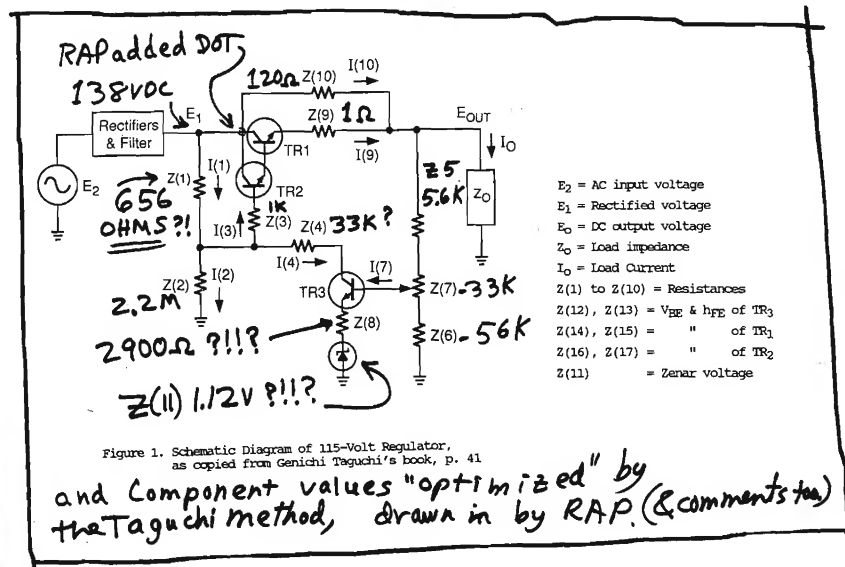 RAP added DOT
138VDC
E1
Rectifiers
& Filter
E2
Z(1)
I(1)
656
OHMS?!
TR1
TR2
120Ω Z(10)
I(10)
Z(9) 1Ω
I(9)
EOUT
IO
ZO
Z5
5.6K
1K
Z(3)
I(3)
Z(4) 33K?
I(4)
I(7)
TR3
Z(7)-33K
Z(2)
I(2)
2.2M
Z(8)
2900Ω ?!!?
Z(6)-56K
Z(11) 1.12V?!!?
E2 = AC input voltage
E1 = Rectified voltage
EO = DC output voltage
ZO = Load impedance
IO = Load Current
Z(1) to Z(10) = Resistances
Z(12), Z(13) = VBE & hFE of TR3
Z(14), Z(15) = " of TR1
Z(16), Z(17) = " of TR2
Z(11) = Zenar voltage
Figure 1. Schematic Diagram of 115-Volt Regulator,
as copied from Genichi Taguchi's book, p. 41
and Component values "optimized" by
the Taguchi method, drawn in by RAP. (& comments too)